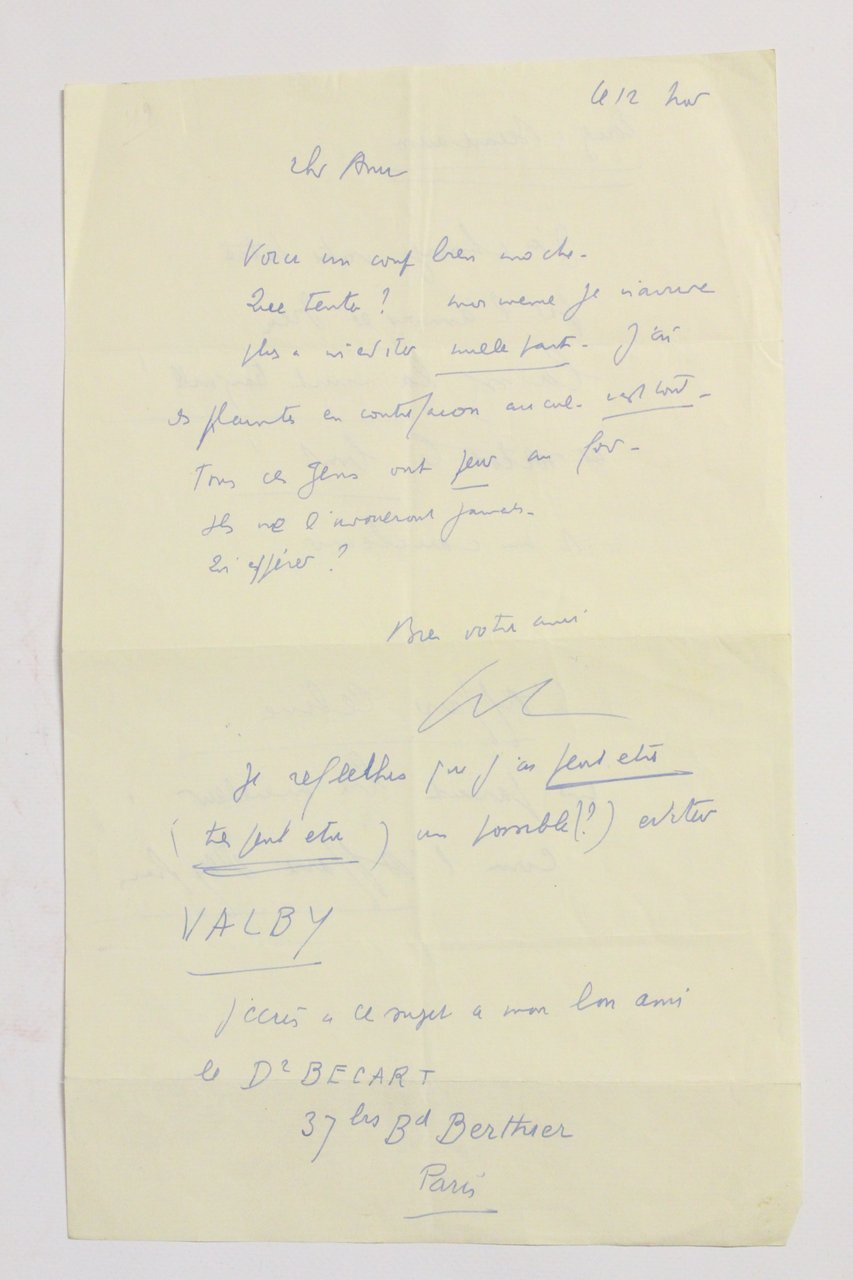 le 12 Nov
Cher Ami
Voici un coup bien moche.
Que tenter? moi meme je n'arrive
plus a m'editer nulle part. J'ai
des plaintes en contrefacon au cul. c'est tout.
Tous ces gens ont peur au fov.
Ils ne l'avoueront jamais.
Qui espérer?
Bien votre ami
Je reflechis que j'ai peut etre
(tres peut etre) un possible(?) editeur
VALBY
J'ecris a ce sujet a mon bon ami
le Dr BECART
37 bis Bd Berthier
Paris